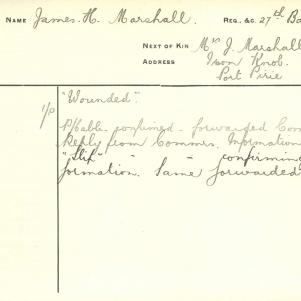 NAME James. H. Marshall. REG. &C. 27th Ba
NEXT OF KIN Mrs J. Marshall
ADDRESS Iron Knob.
Port Pirie
"Wounded".
P/Cable confirmed - forwarded Com
Reply from Commrs. Information
"Slip" " - confirming
formation. Same forwarded